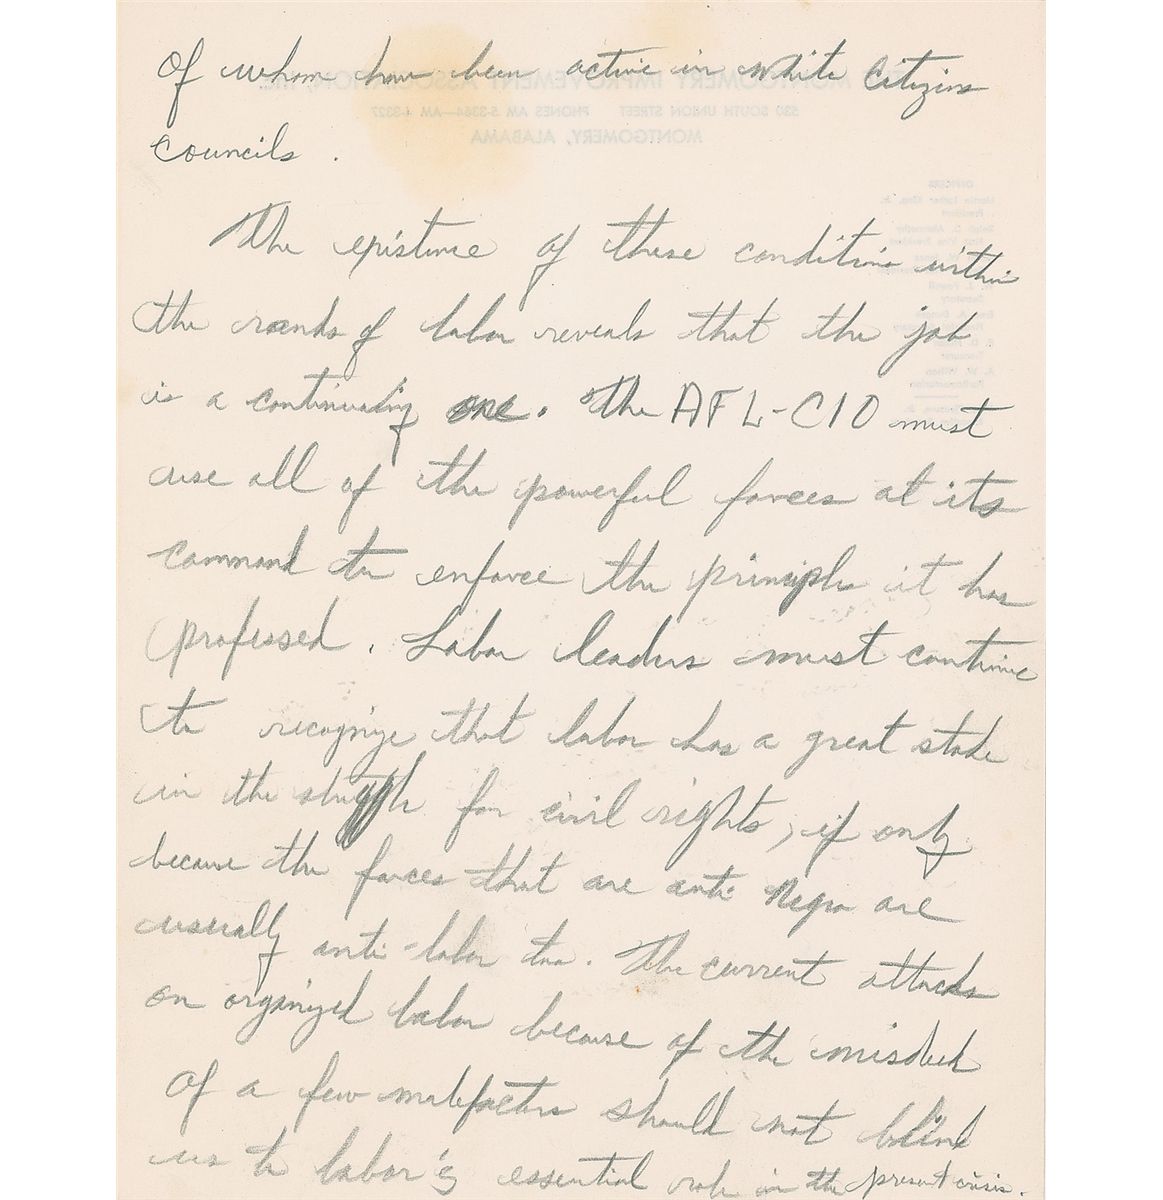 of whom have been active in White Citizens
Councils.
The existence of these conditions within
the ranks of labor reveals that the job
is a continuing one. The AFL-CIO must
use all of the powerful forces at its
command to enforce the principles it has
professed. Labor leaders must continue
to recognize that labor has a great stake
in the struggle for civil rights, if only
because the forces that are anti Negro are
usually anti-labor too. The current attacks
on organized labor because of the misdeeds
of a few malefactors should not blind
us to labor's essential role in the present crisis.
MONTGOMERY IMPROVEMENT ASSOCIATION, INC.
530 SOUTH UNION STREET PHONES AM 5-3364—AM 4-3327
MONTGOMERY, ALABAMA
OFFICERS
Martin Luther King, Jr.
President